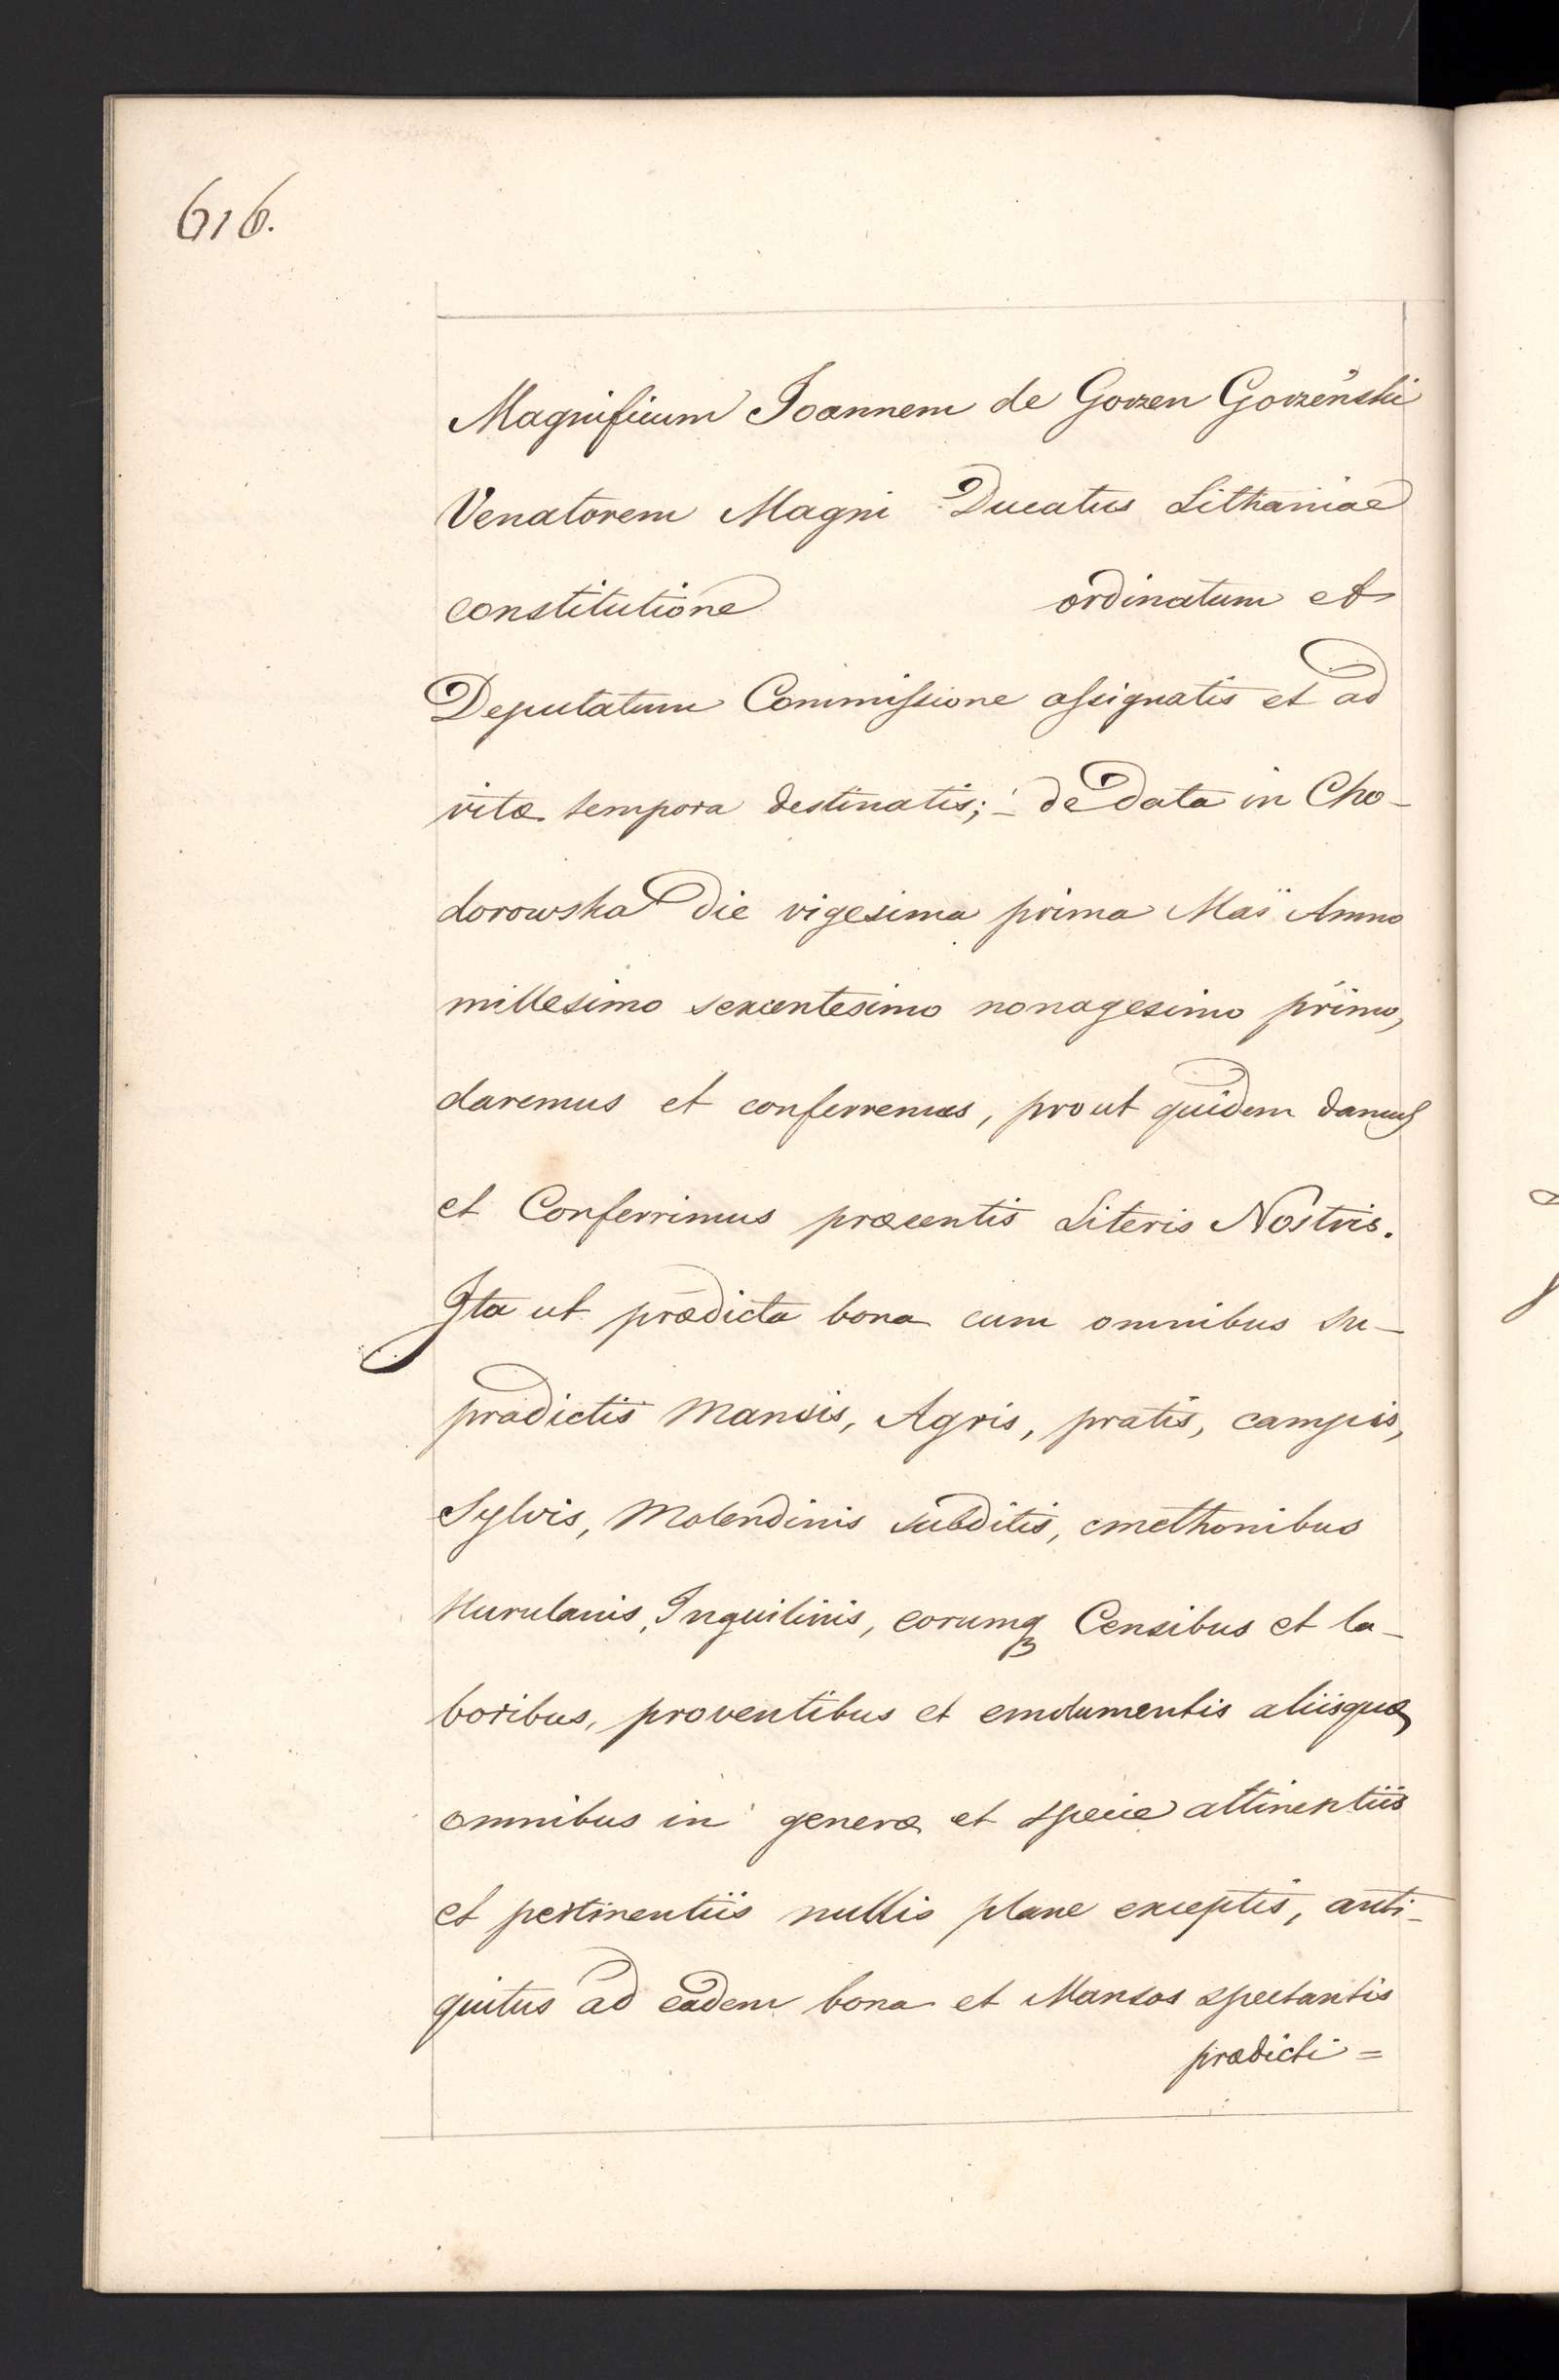 616.
Magnificum Joannem de Gorzen Gorzeński
Venatorem Magni Ducatus Lithaniae
constitutione ordinatum et
Deputatum Commissione assignatis et ad
vitæ tempora destinatis; – de data in Cho-
dorowska die vigesima prima Maÿ Anno
millesimo sexcentesimo nonagesimo primo,
daremus et conferremus, prout quidem damus
et Conferrimus præsentis Literis Nostris.
Ita ut prædicta bona cum omnibus su-
pradictis Mansis, Agris, pratis, campis,
Sylvis, Molendinis subditis, cmethonibus
Hurulanis, Inquilinis, eorumq Censibus et la-
boribus, proventibus et emolumentis aliisque
omnibus in genere et specie attinentiis
et pertinentiis nullis plane exceptis, anti-
quitus ad eadem bona et Mansos spectantis
prædicti=